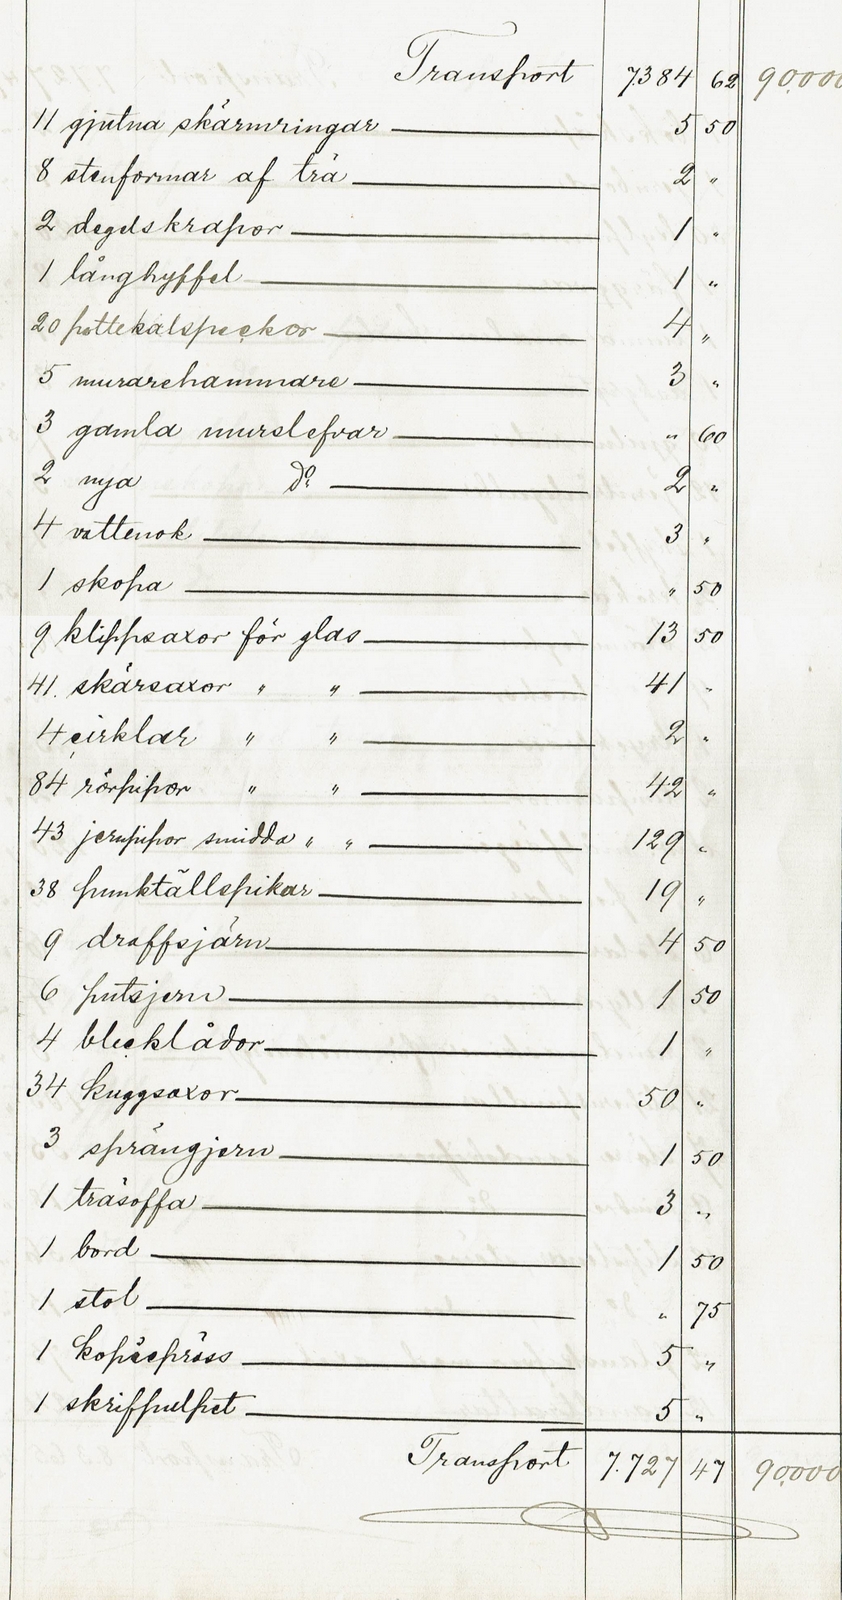 Transport 7384 62 90,000
11 gjutna skärmringar 5 50
8 stenformar af trä 2 "
2 degelskrapor 1 "
1 långhyffel 1 "
20 pottekalspeckor 4 "
5 murarehammare 3 "
3 gamla murslefvar " 60
2 nya Do 2 "
4 vattenok 3 "
1 skopa " 50
9 klippsaxor för glas 13 50
41. skärsaxor " " 41 "
4 cirklar " " 2 "
84 rörpipor " " 42 "
43 jernpipor smidda " " 129 "
38 punktällspikar 19 "
9 draffsjärn 4 50
6 putsjern 1 50
4 blecklådor 1 "
34 kuggsaxor 50 "
3 sprängjern 1 50
1 träsoffa 3 "
1 bord 1 50
1 stol " 75
1 kopiepräss 5 "
1 skrifpulpet 5 "
Transport 7.727 47 90,000